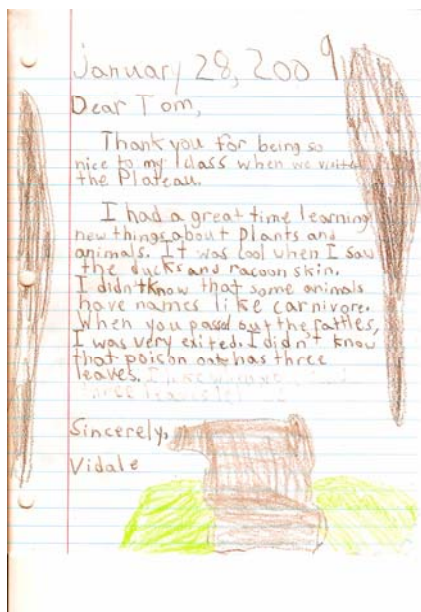 January 28, 2009
Dear Tom,
Thank you for being so
nice to my class when we
the Plateau.
I had a great time learning
new things about plants and
animals. It was cool when I saw
the ducks and racoon skin.
I didn't know that some animals
have names like carnivore.
When you passed out the rattles,
I was very exited. I didn't know
that poison oak has three
leaves.
Sincerely,
Vidale